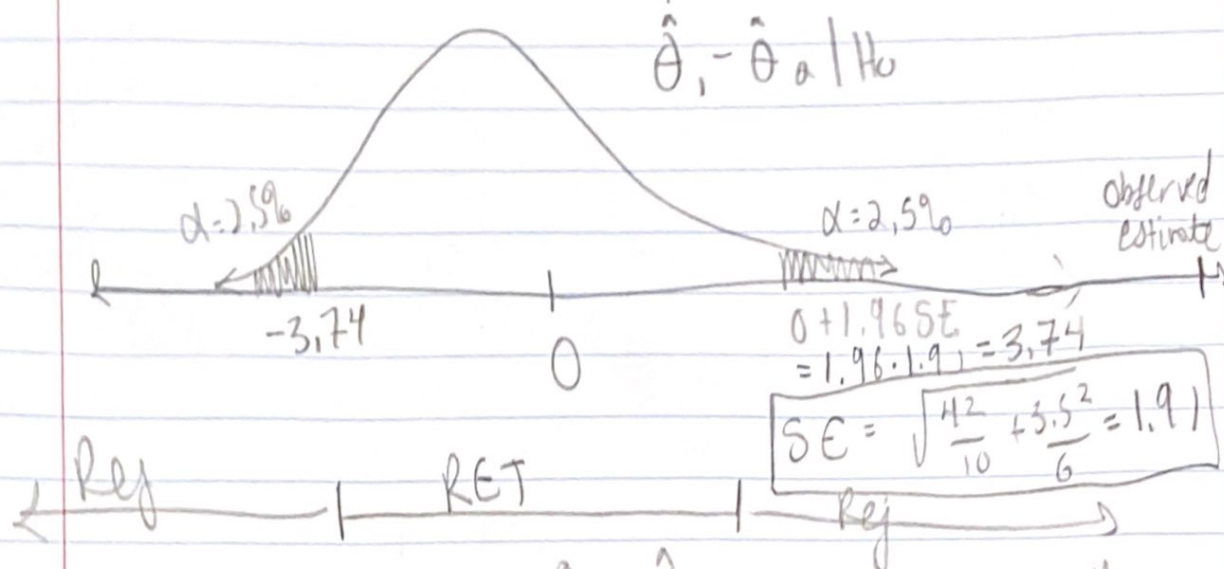 θ̂₁ - θ̂₂ | H₀
α=2,5%
α=2,5%
observed
estimate
-3,74
0
0+1.96SE
=1.96·1.91=3,74
SE = √(4²/10 + 3.5²/6) = 1.91
Rej
RET
Rej